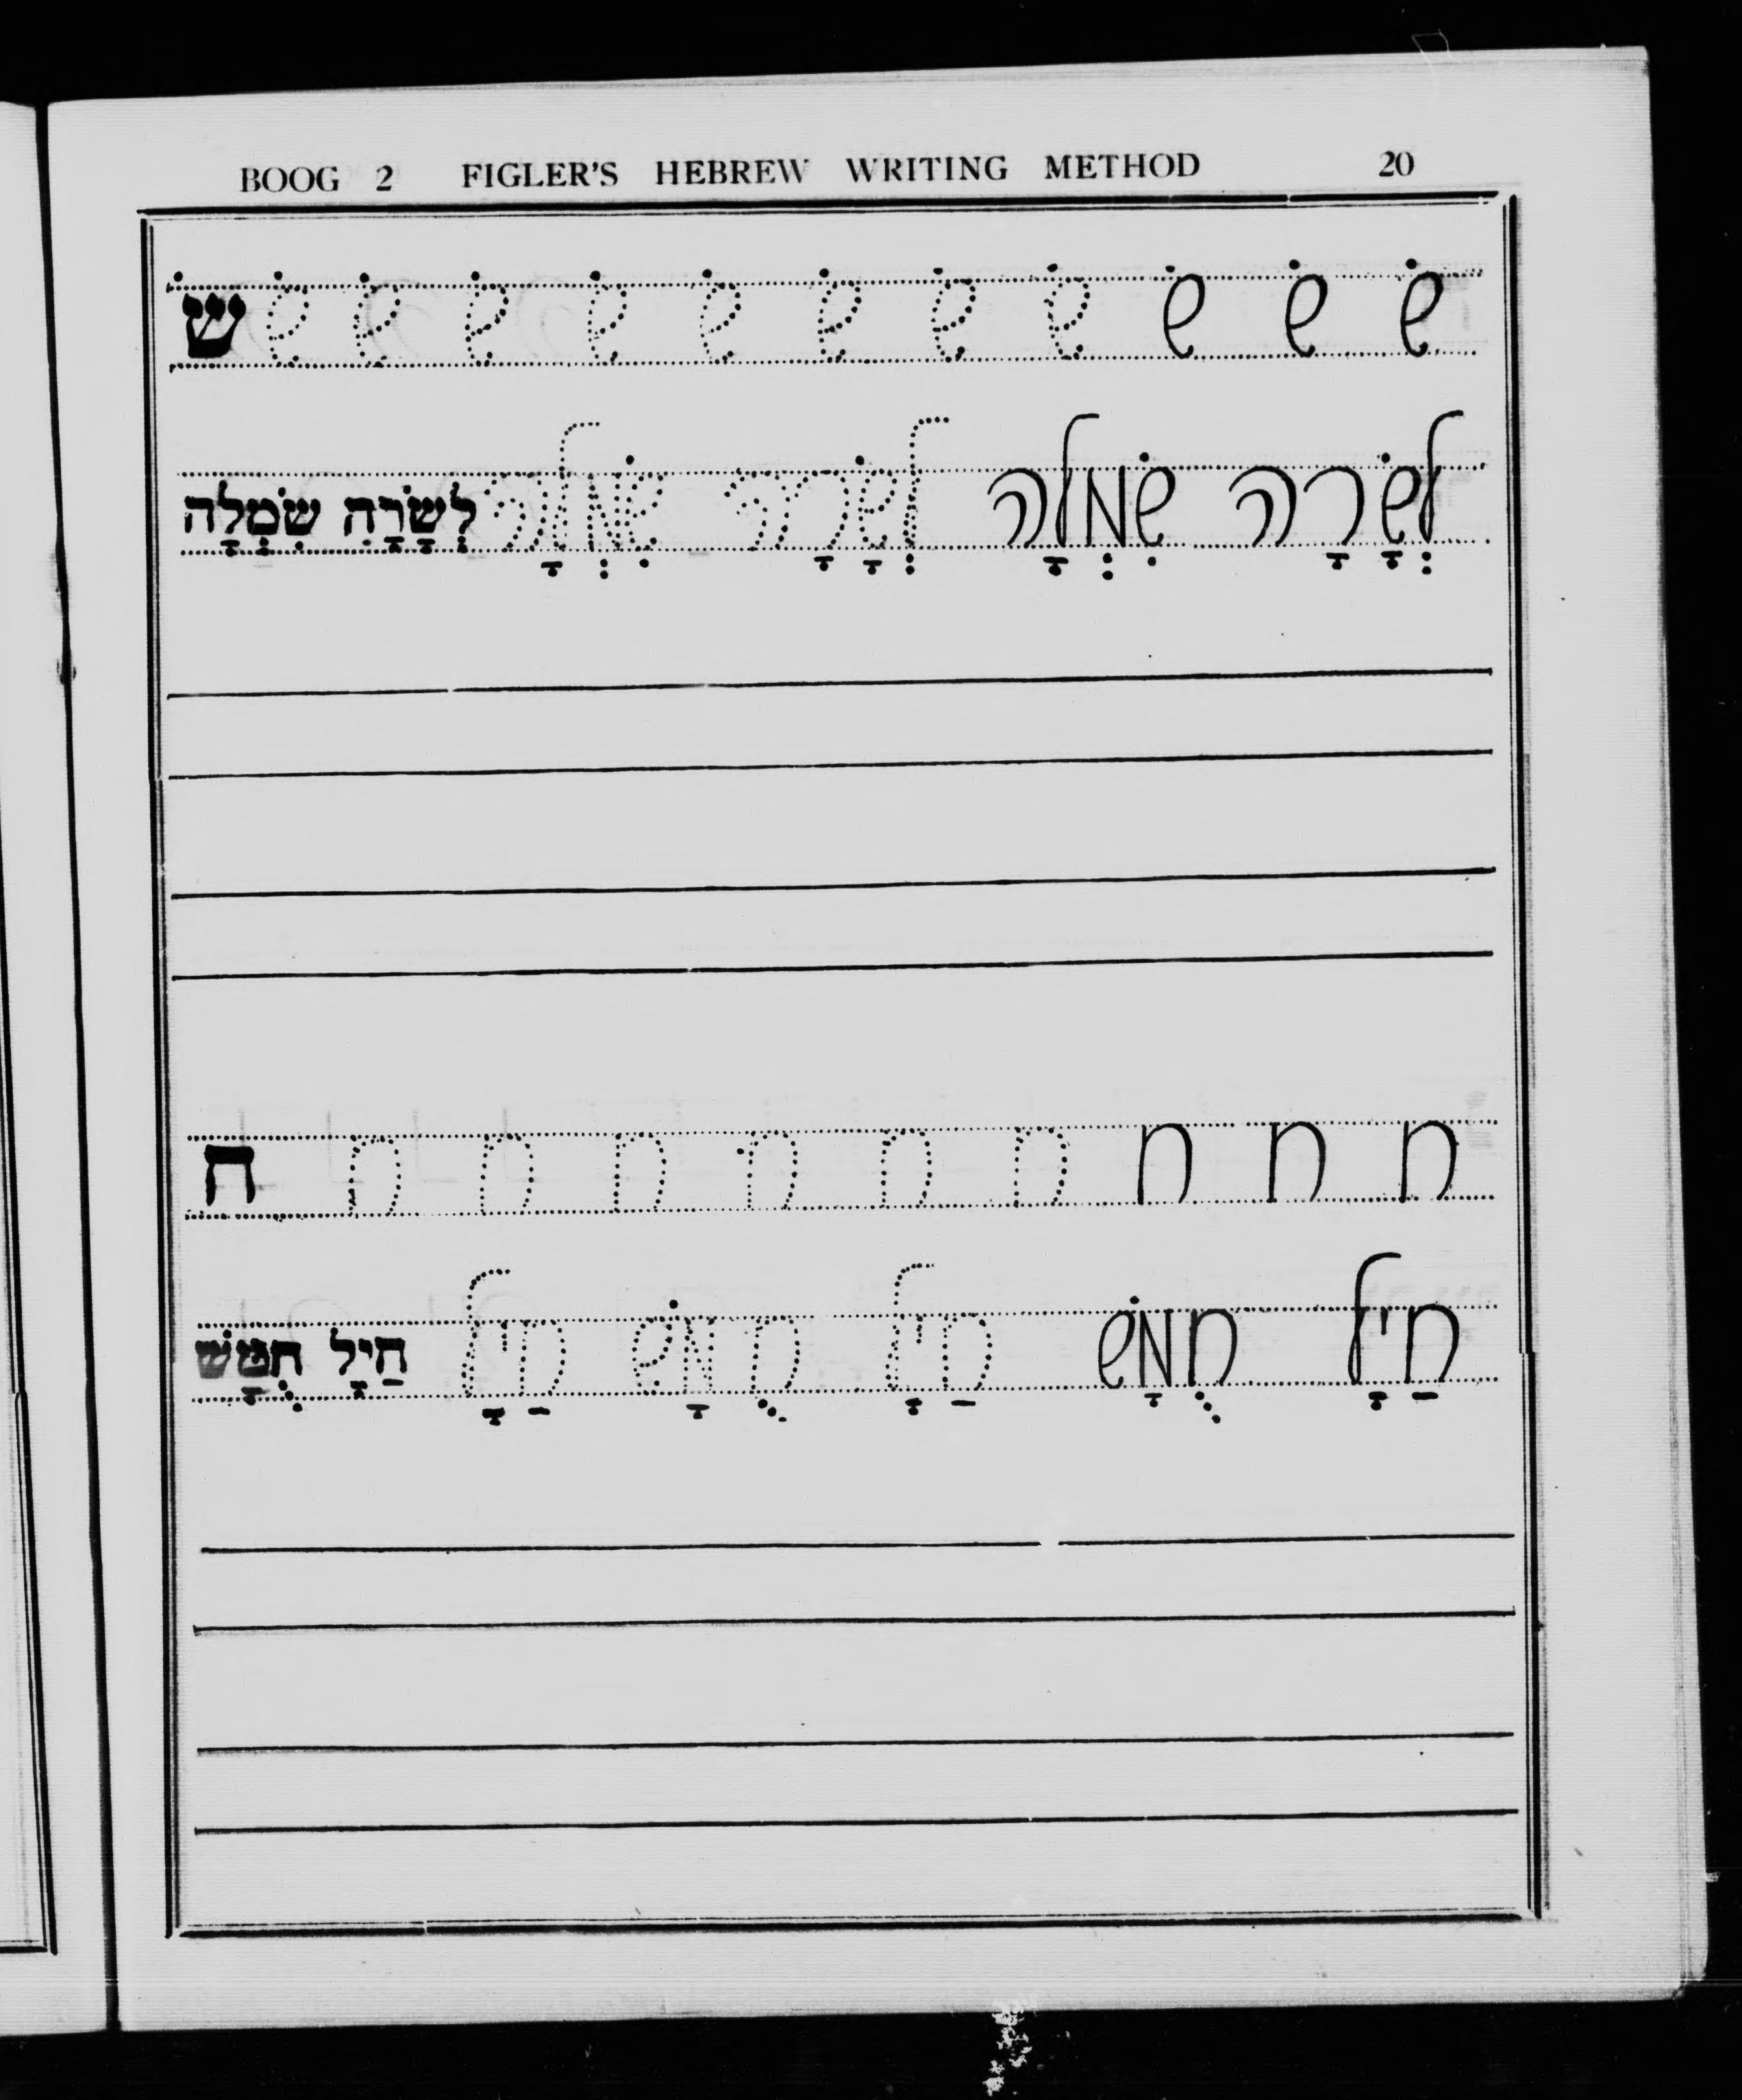 BOOG 2 FIGLER'S HEBREW WRITING METHOD 20
שׂ שׂ שׂ שׂ שׂ שׂ שׂ שׂ שׂ שׂ שׂ שׂ
לְשָׂרָה שִׂמְלָה לְשָׂרָה שִׂמְלָה לְשָׂרָה שִׂמְלָה
ח ח ח ח ח ח ח ח ח ח
חַיָל חֻמָשׁ חַיָל חֻמָשׁ חַיָל חֻמָשׁ